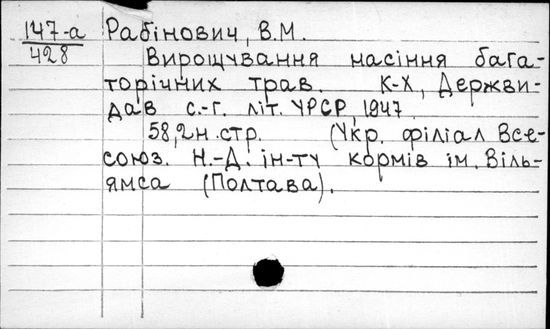 147-а Рабінович, В.М.
428 Вирощування насіння бага-
торічних трав. К-Х, Держви-
дав с.-г. літ. УРСР, 1947.
58,2н.стр. (Укр. філіал Все-
союз. Н.-Д. ін-ту кормів ім. Віль-
ямса (Полтава).